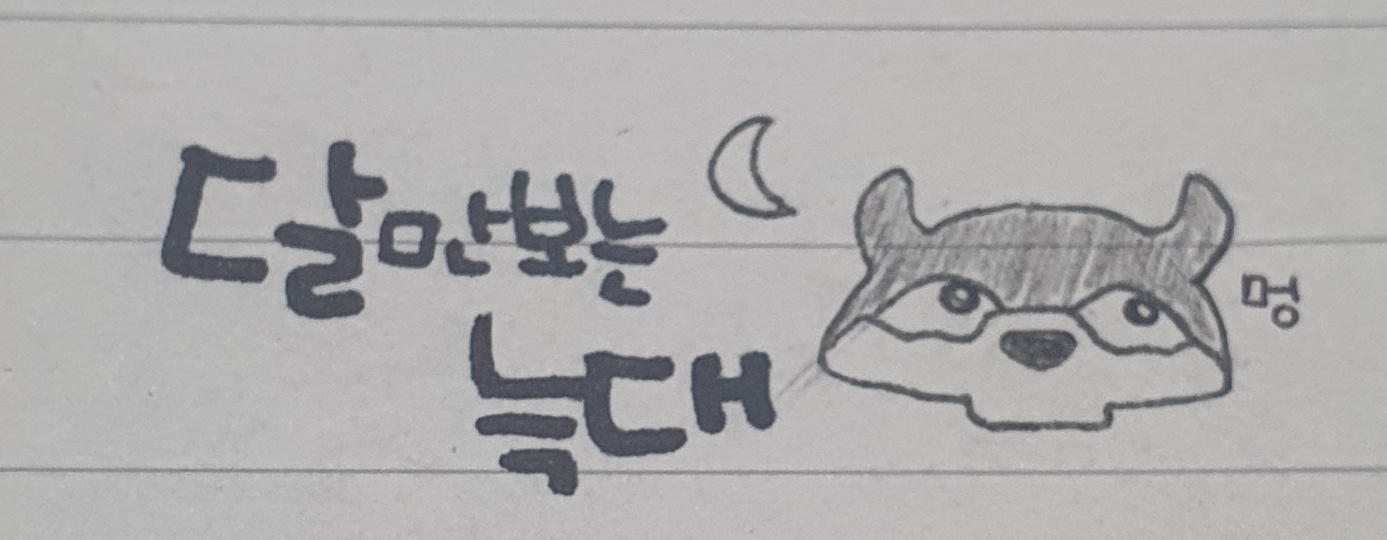 달만보는
늑대
멍